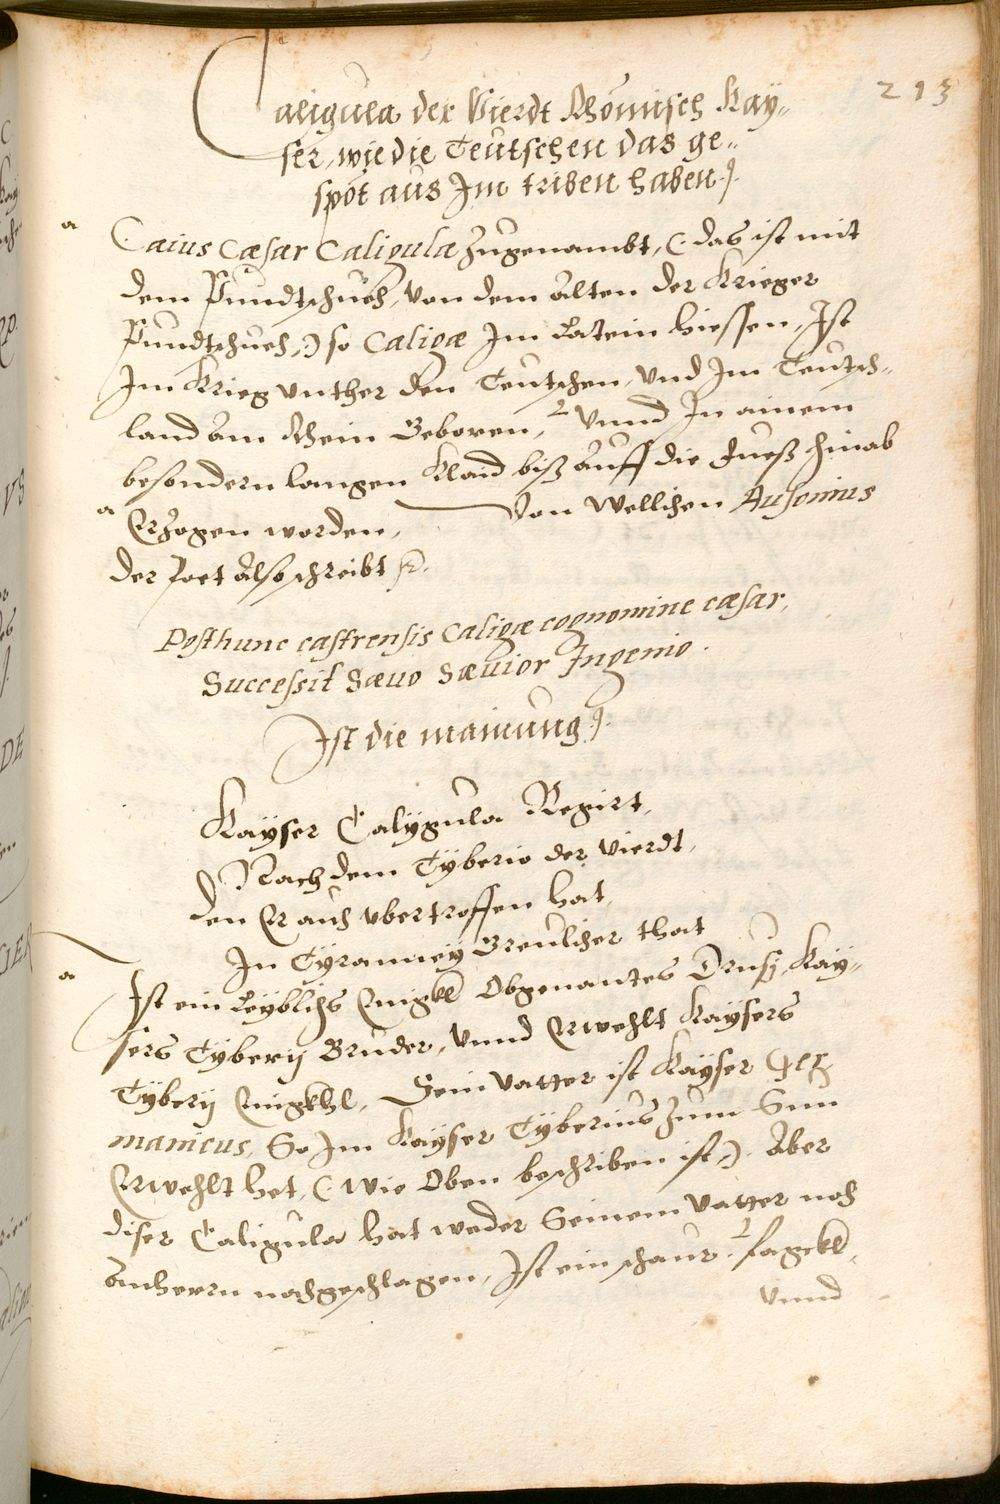 213
Caligula der Vierdt Rhömisch Kaÿ„
ser, wie die Teutschen das ge„
spöt aus Im triben haben.
a
Caius Cæsar Caligula zugenambt, (. das ist mit
dem Pundtschuech, von dem alten der Krieger
Pundtschuech,) so Caligæ Im Latein hiessen, Ist
Im Krieg vnther den Teutschen, Vnd Im Teutsch„
land am Rhein Geboren, 2 Vnnd In ainem
besondern langen Klaid biß auff die Fueß hinab
a
Erzogen worden, Von Wellichen Ausonius
der Poet also schreibt
Post hunc castrensis Caligæ cognomine cæsar,
Successit Sæuo Sæuior Ingenio.
Ist die mainung.
Kaÿser Calÿgula Regirt,
Nach dem Tÿberio der vierdt,
den Er auch vbertroffen hat,
In Tÿranneÿ Greulicher that
a
Ist ein Leÿblichs Enigkl Obgenantes Drusj, Kaÿ„
sers Tÿberij Bruder, Vnnd Erwehlt Kaÿsers
Tÿberij Enigkhl, Sein Vatter ist Kaÿser Ger
manicus, So Im Kaÿser Tÿberius zum Sun
Erwehlt het, (. wie Oben beschriben ist,). Aber
diser Caligula hat weder Seinem Vatter noch
Anherrn nachgeschlagen, Ist ein schaur 2
vnnd